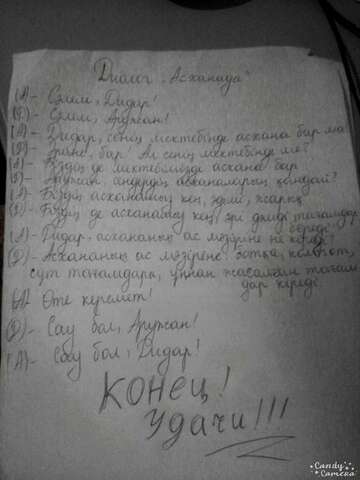 Диалог „Асханада"
(А)- Сәлем, Дидар!
(Д)- Сәлем, Аружан!
(А)- Дидар, сенің мектебінде асхана бар ма
(Д)- Әрине, бар! Ал сенің мектебінде ше?
(А)- Біздің де мектебімізде асхана бар
(Д)- Аружан, сендердің асханаларың қандай?
(А)- Біздің асханамыз кең, әдемі, жарық.
(Д)- Біздің де асханамыз кең, әрі дәмді тағамдар береді
(А)- Дидар, асхананың ас мәзіріне не кіреді?
(Д)- Асхананың ас мәзіріне: ботқа, компот,
сүт тағамдары, ұннан жасалған тағам
дар кіреді.
(А)- Өте керемет!
(Д)- Сау бол, Аружан!
(А)- Сау бол, Дидар!
КОНЕЦ!
Удачи!!!
Candy
Camera